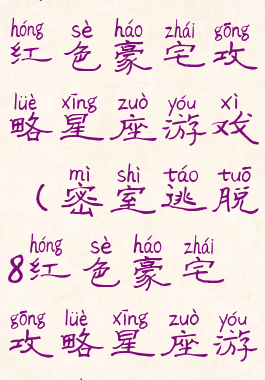 hóng sè háo zhái gōng
红色豪宅攻
lüè xīng zuò yóu xì
略星座游戏
mì shì táo tuō
（密室逃脱
hóng sè háo zhái
8红色豪宅
gōng lüè xīng zuò yóu
攻略星座游